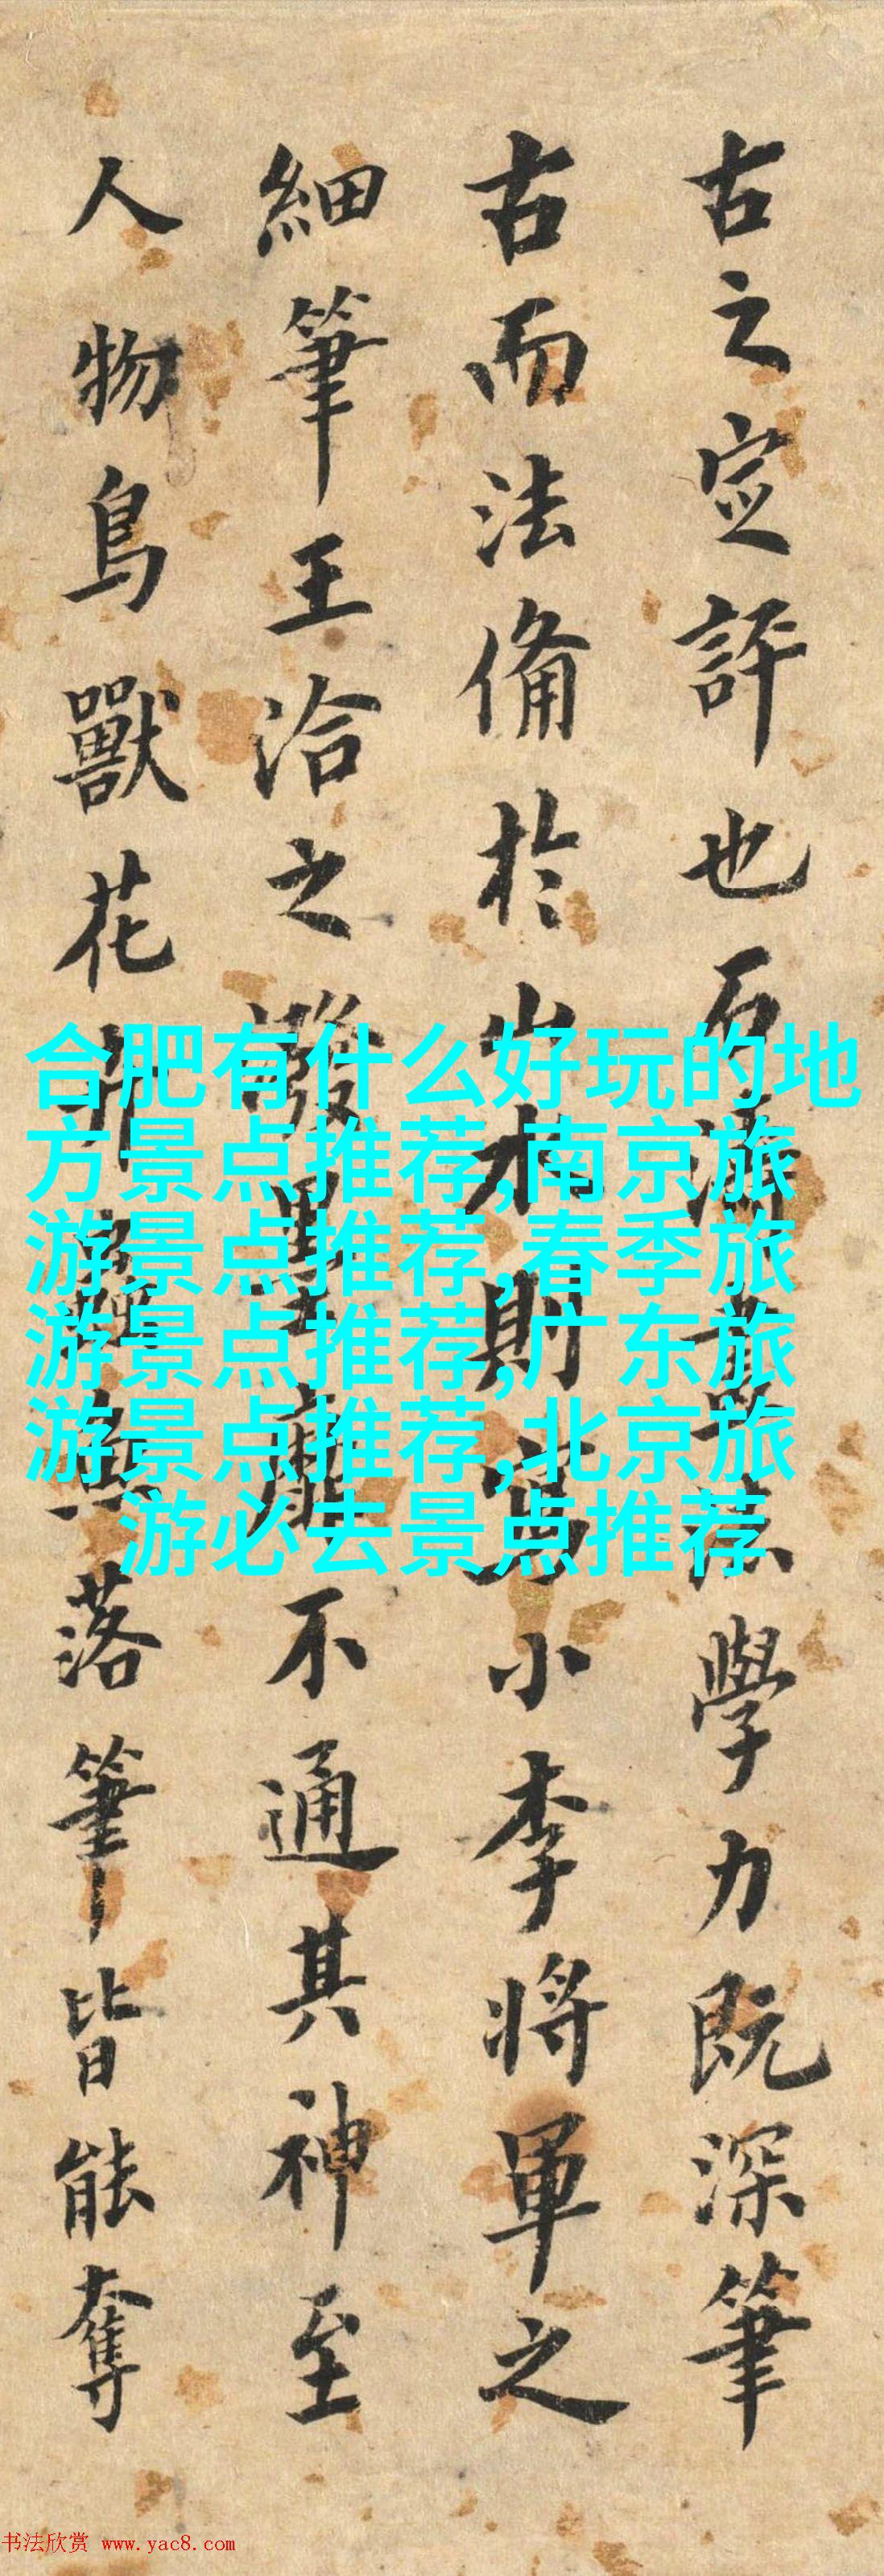 古之定評也石學力既深筆
古而法備於山水則寫小李將軍之
細筆王洽之潑墨靡不通其神至
人物鳥獸花卉蟲魚落筆皆能奪
合肥有什么好玩的地
方景点推荐,南京旅
游景点推荐,春季旅
游景点推荐,广东旅
游景点推荐,北京旅
游必去景点推荐
书法欣赏 www.yac8.com